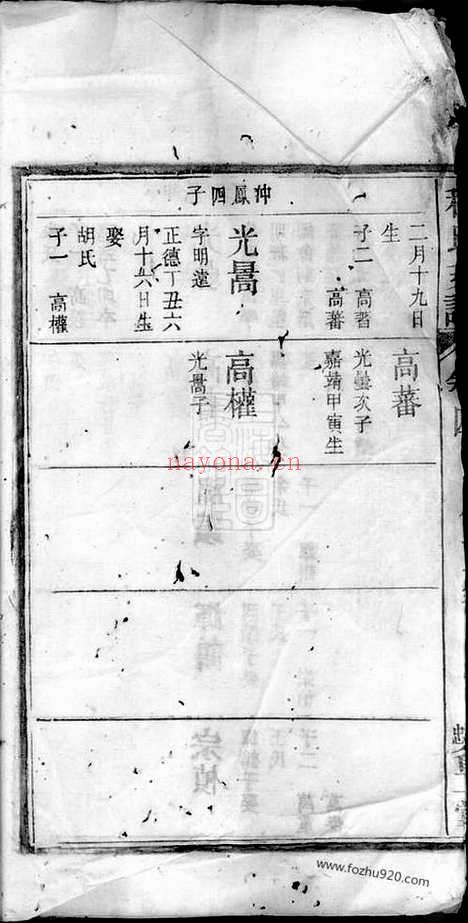 仲鳳四子
二月十九日
生
子二　高晋
高蕃
光暠
字明遠
正德丁丑六
月十六日生
娶
胡氏
子一　高權
高蕃
光曇次子
嘉靖甲寅生
高權
光暠子
nayona.cn
www.fozhu920.com